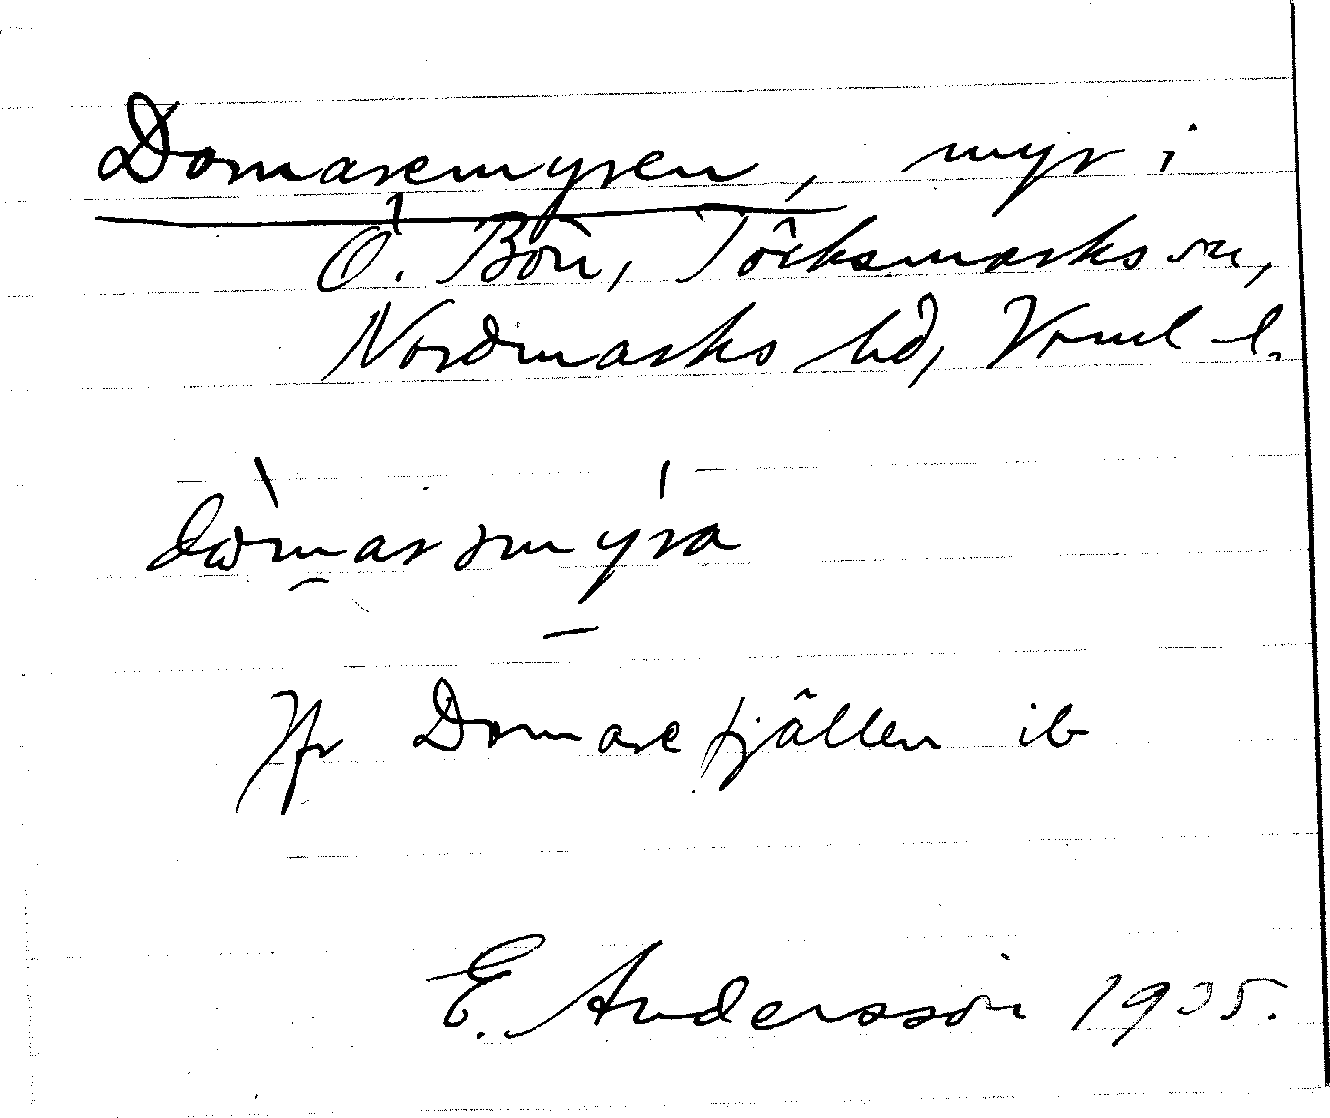 Domaremyren, myr i
Ö. Bön, Töcksmarks sn,
Nordmarks hd, Vrml l.
dωmarsmyra
Jfr Domarefjällen ib
E. Andersson 1935.